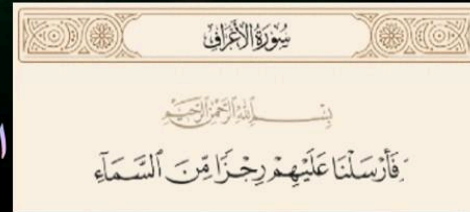 سُورَةُ الأَعْرَافِ
بِسْمِ اللَّهِ الرَّحْمَٰنِ الرَّحِيمِ
فَأَرْسَلْنَا عَلَيْهِمْ رِجْزًا مِّنَ ٱلسَّمَآءِ